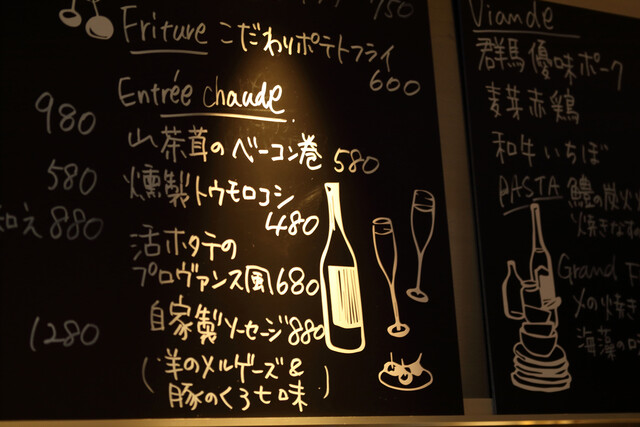 750
Friture こだわりポテトフライ
600
Entrée chaude
山茶茸のベーコン巻 580
燻製トウモロコシ
480
活ホタテの
プロヴァンス風 680
自家製ソーセージ 880
(羊のメルゲーズ&
豚のくろ七味)
980
580
和え 880
1280
Viande
群馬優味ポーク
麦芽赤鶏
和牛いちぼ
PASTA 鱧の炭火
焼きなすの
Grand
〆の焼き
海藻の